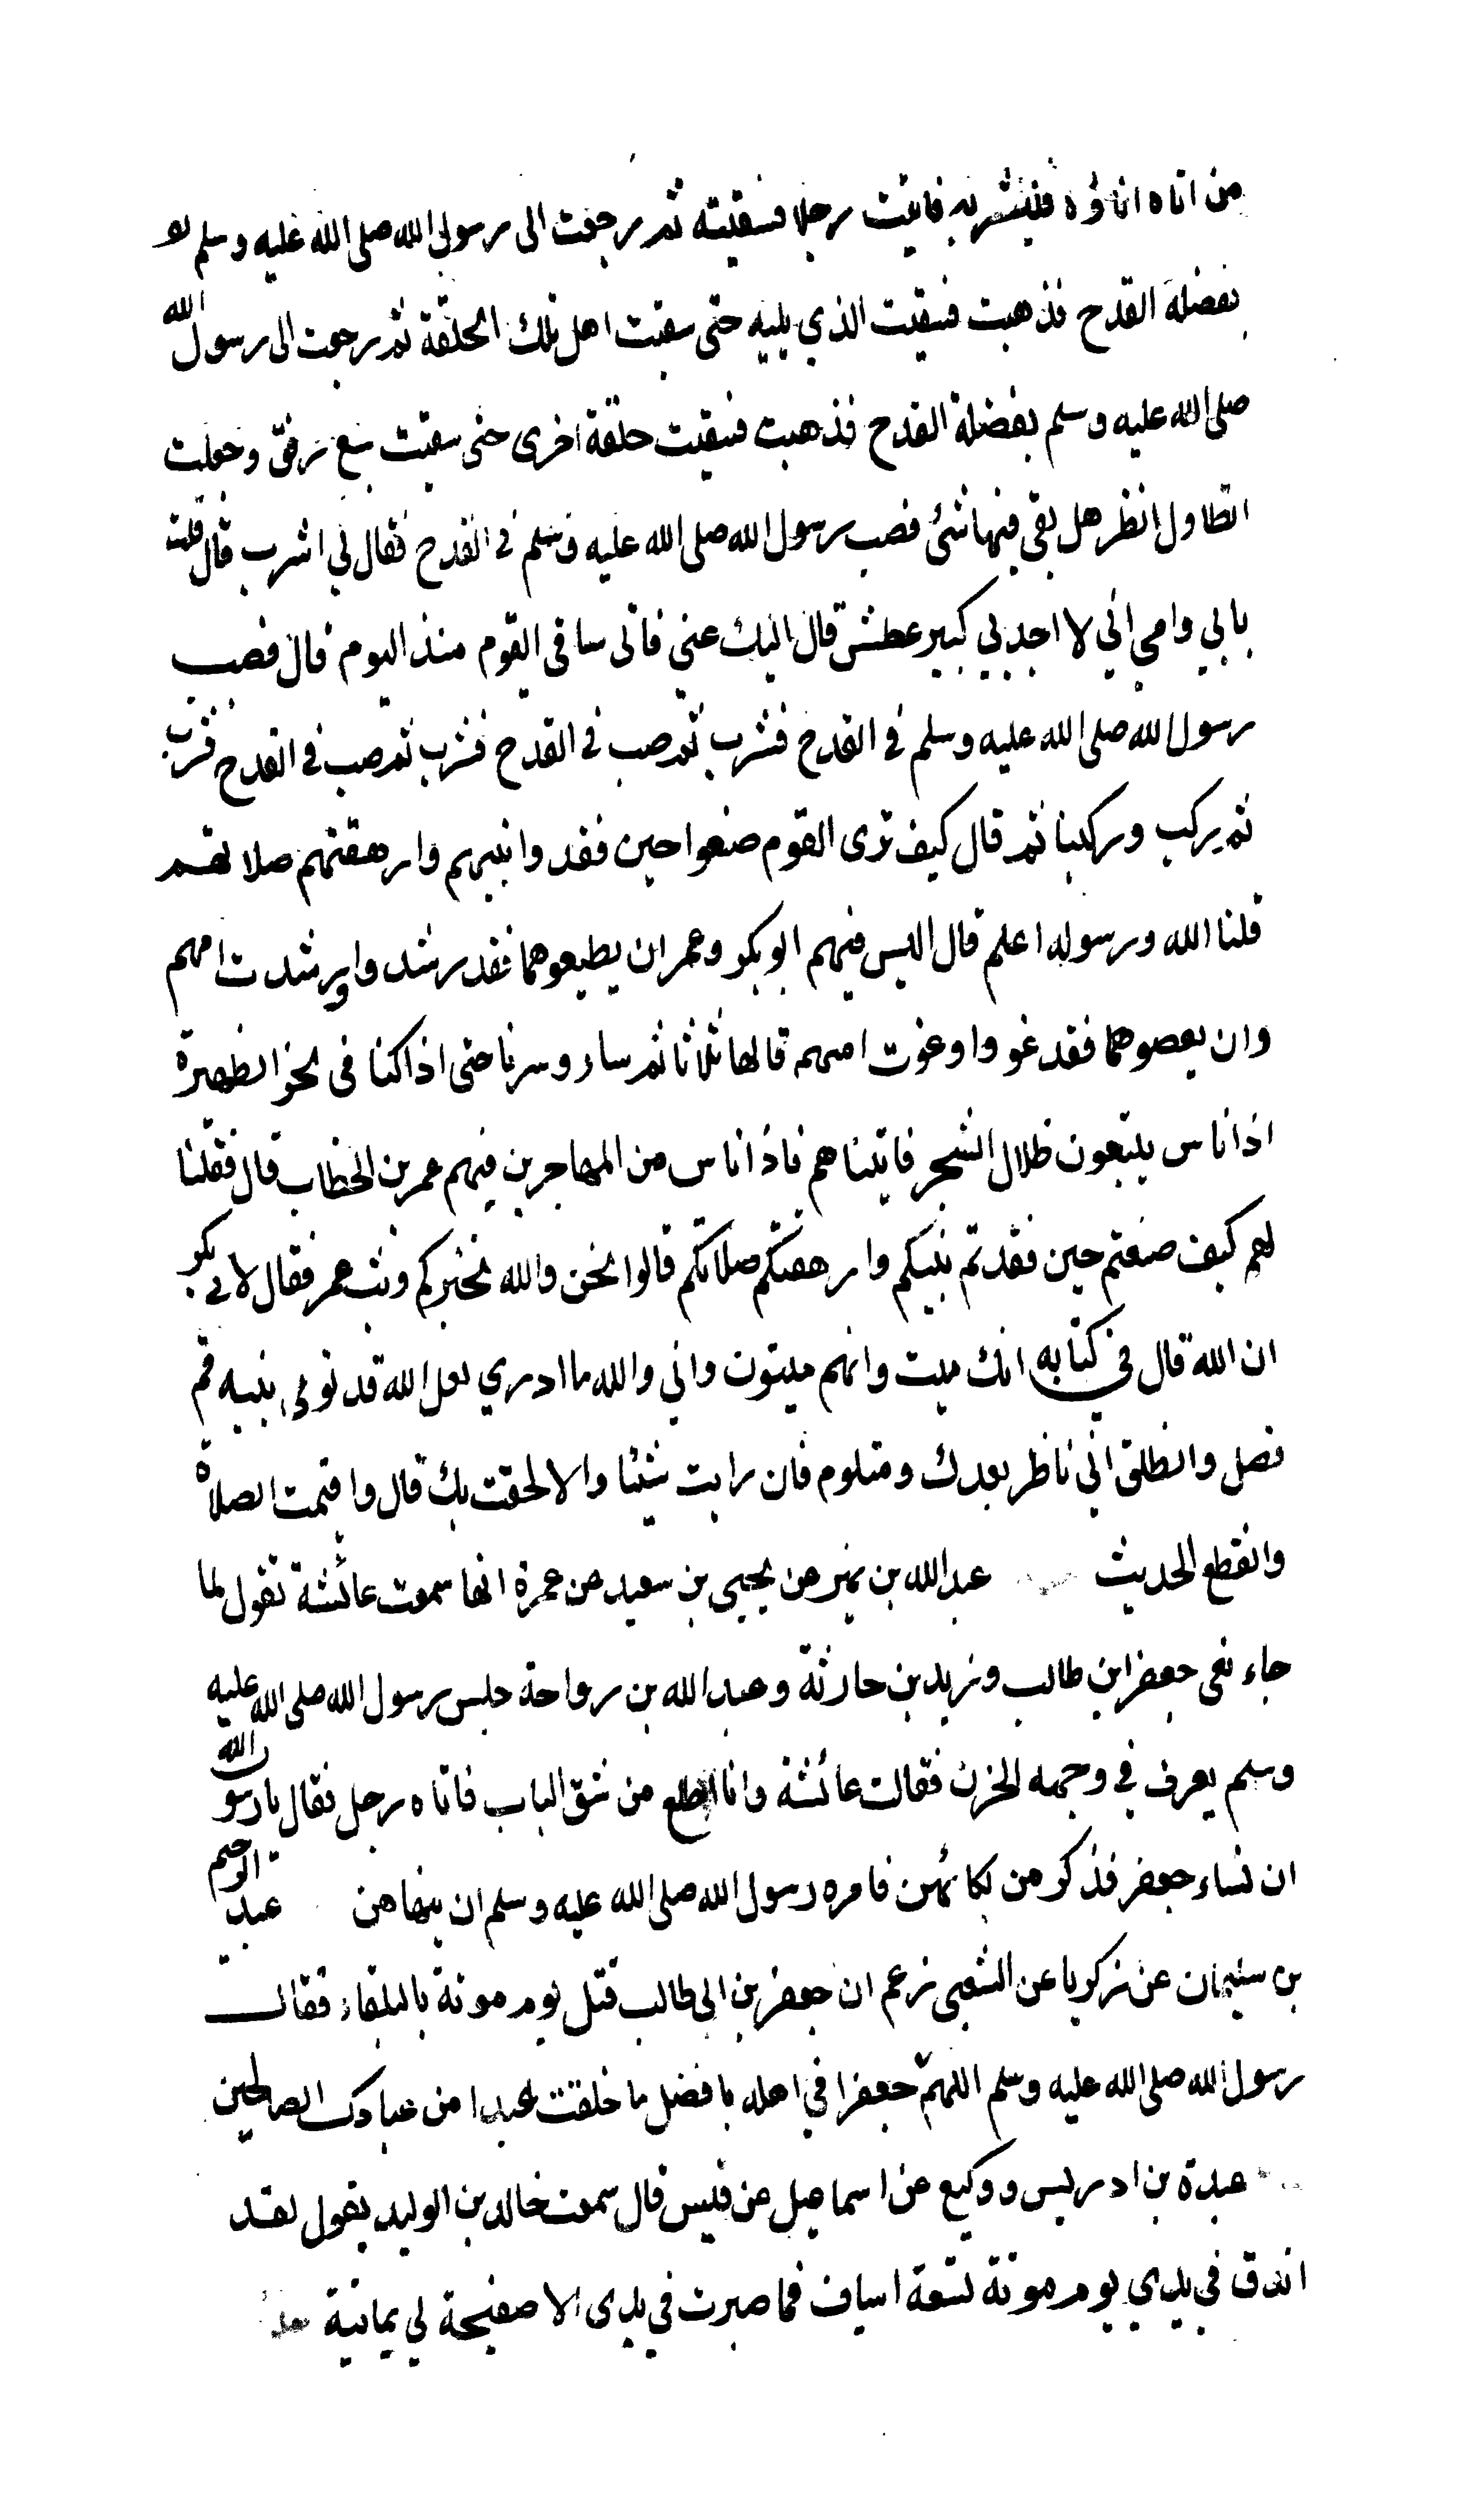 من اتاه اناؤه فليشربه فاتيت رجلا فسقيته ثم رجعت الى رسول الله صلى الله عليه وسلم
بفضلة القدح فذهبت فسقيت الذي يليه حتى سقيت اهل تلك الحلقة ثم رجعت الى رسول الله
صلى الله عليه وسلم بفضلة القدح فذهبت فسقيت حلقة اخرى حتى سقيت سبع رفق وجعلت
اتطاول انظر هل بقي فيها شئ فصب رسول الله صلى الله عليه وسلم في القدح فقال لي اشرب قال قلت
بابي وامي اني لا اجد بي كبير عطش قال اليك عني فاني ساقي القوم منذ اليوم قال فصب
رسول الله صلى الله عليه وسلم في القدح فشرب ثم صب في القدح فشرب ثم صب في القدح فشرب
ثم ركب وركبنا ثم قال كيف ترى القوم صنعوا حين فقدوا نبيهم وارهقتهم صلاتهم
قلنا الله ورسوله اعلم قال اليس فيهم ابو بكر وعمر ان يطيعوهما فقد رشدوا ورشدت امهم
وان يعصوهما فقد غووا وغوت امهم قالها ثلاثا ثم سار وسرنا حتى اذا كنا في نحر الظهيرة
اذا ناس يتبعون ظلال الشجر فاتيناهم فاذا ناس من المهاجرين فيهم عمر بن الخطاب قال فقلنا
لهم كيف صنعتم حين فقدتم نبيكم وارهقتكم صلاتكم قالوا نحن والله نخبركم وثب عمر فقال لابي بكر
ان الله قال في كتابه انك ميت وانهم ميتون واني والله ما ادري لعل الله قد توفى نبيه قم
فصل وانطلق اني ناظر بعدك ومتلوم فان رايت شيئا والا لحقت بك قال واقيمت الصلاة
وانقطع الحديث عبد الله بن نمير عن يحيى بن سعيد عن عمرة انها سمعت عائشة تقول لما
جاء نعى جعفر ابن طالب وزيد بن حارثة وعبد الله بن رواحة جلس رسول الله صلى الله عليه
وسلم يعرف في وجهه الحزن فقالت عائشة وانا اطلع من شق الباب فاتاه رجل فقال يا رسول الله
ان نساء جعفر فذكر من بكائهن فامره رسول الله صلى الله عليه وسلم ان ينهاهن عبد الرحيم
بن سليمان عن زكريا عن الشعبي زعم ان جعفر بن ابي طالب قتل يوم موتة بالبلقاء فقال
رسول الله صلى الله عليه وسلم اللهم جعفرا في اهله بافضل ما خلقت عبدا من عبادك الصالحين
عبدة بن ادريس ووكيع عن اسماعيل عن قيس قال سمعت خالد بن الوليد يقول لقد
اندق في يدي يوم موتة تسعة اسياف فما صبرت في يدى الا صفيحة لي يمانية